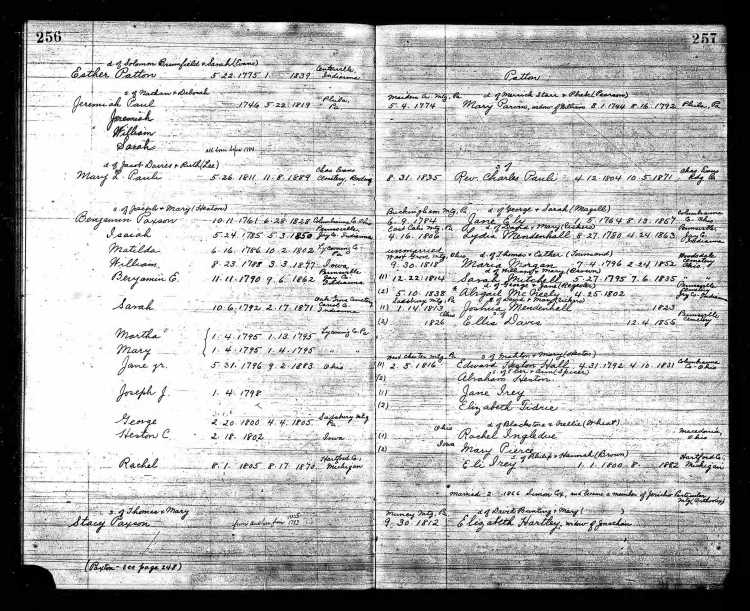 256
d of Solomon Brumfield & Sarah (Evans)
Esther Patton 5-22-1775 1- 1839 Centerville, Indiana
s of Nathan & Deborah
Jeremiah Paul 1746 5-22-1819 Phila. Pa
Jeremiah
William
Sarah all born before 1781
d of Janot Davies & Ruth (Lee)
Mary L Pauli 5-26-1811 11-8-1889 Chas Evans Cemetery, Reading
s of Joseph & Mary (Heston)
Benjamin Paxson 10-11-1761 6-28-1828 Columbiana Co Ohio
Isaiah 5-24-1785 5-3-1850 Jay Co. Indiana
Matilda 6-16-1786 10-2-1802 Lycoming Co Pa
William 8-23-1788 3-3-1877 Iowa
Benjamin E. 11-11-1790 9-6-1862 Jay Co. Indiana
Sarah 10-6-1792 2-17-1871 Oak Grove Cemetery Indiana
Martha 1-4-1795 1-13-1795 Lycoming Co Pa
Mary 1-4-1795 1-4-1795 " "
Jane jr. 5-31-1796 9-2-1883 Ohio
Joseph J. 1-4-1798
George 2-20-1800 4-4-1805 Sadsbury Mtg Pa
Heston C 2-18-1802 Iowa
Rachel 8-1-1805 8-17-1870 Hartford Co, Michigan
s of Thomas & Mary
Stacy Paxson
(Paxton - see page 248)
257
Patton
d of Merrick Starr & Phebe (Pearson)
5-4-1774 Mary Parvin, widow of William 8-1-1744 8-16-1792 Phila., Pa
s of
8-31-1835 Rev. Charles Pauli 4-12-1804 10-5-1871 Chas Evans Rdg Co
Buckingham Mtg, Pa d of George & Sarah (Magill)
6-9-1784 Jane Ely 4-5-1764 8-13-1857 Columbiana Co Ohio
East Caln Mtg, Pa
4-16-1806 Lydia Mendenhall 8-27-1780 4-24-1863 Jay Co. Indiana
unmarried
West Grove Mtg, Ohio d of Thomas & Esther (Townsend)
9-30-1818 Maria Morgan 4-5-1796 2-24-1852 Cemetery Ohio
d of William & Mary (Brown)
(1) 12-22-1814 Sarah Pritchell 5-27-1795 7-6-1835
d of George & Jane (Register)
(2) 5-10-1838 Abigail McGrealy 4-25-1802 Jay Co. Indiana
Sadsbury Mtg, Pa
(1) 1-14-1813 Joshua Mendenhall 1823
Ohio
(2) 1826 Ellis Davis 12-4-1855 Cemetery
West Chester Mtg, Pa s of Mahlon & Mary (Heston)
(1) 2-5-1816 Edward Paxton Hall 4-31-1792 4-10-1831 Columbiana Co Ohio
(2) Abraham Heston
(1) Jane Irey
(2) Elizabeth Fidrie
Ohio d of Blackstone & Nellie (Wheat)
(1) Rachel Ingledue Macedonia, Ohio
Iowa
(2) Mary Pierce
s of Philip & Hannah (Brown)
Eli Irey 1-1-1800 8- 1882 Hartford Co, Michigan
Married 2- 1866 Simon Cox, and became a member of Jericho Particular Mtg (Orthodox)
Muncy Mtg, Pa d of David Bunting & Mary ( )
9-30-1812 Elizabeth Hartley, widow of Jonathan